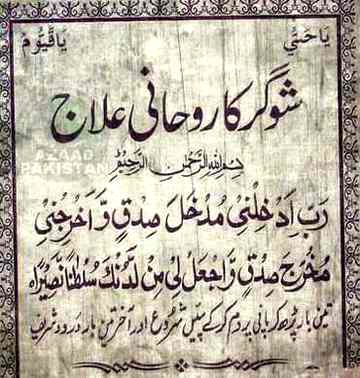 یَا حَیُّ یَا قَیُّوْمُ
شوگر کا روحانی علاج
AZAAD
PAKISTAN
بِسْمِ اللهِ الرَّحْمٰنِ الرَّحِيْمِ
رَبِّ اَدْخِلْنِیْ مُدْخَلَ صِدْقٍ وَّ اَخْرِجْنِیْ
مُخْرَجَ صِدْقٍ وَّاجْعَلْ لِّیْ مِنْ لَّدُنْكَ سُلْطٰنًا نَّصِیْرًا
تین بار پڑھ کر پانی پر دم کر کے پئیں شروع اور آخر تین بار درود شریف